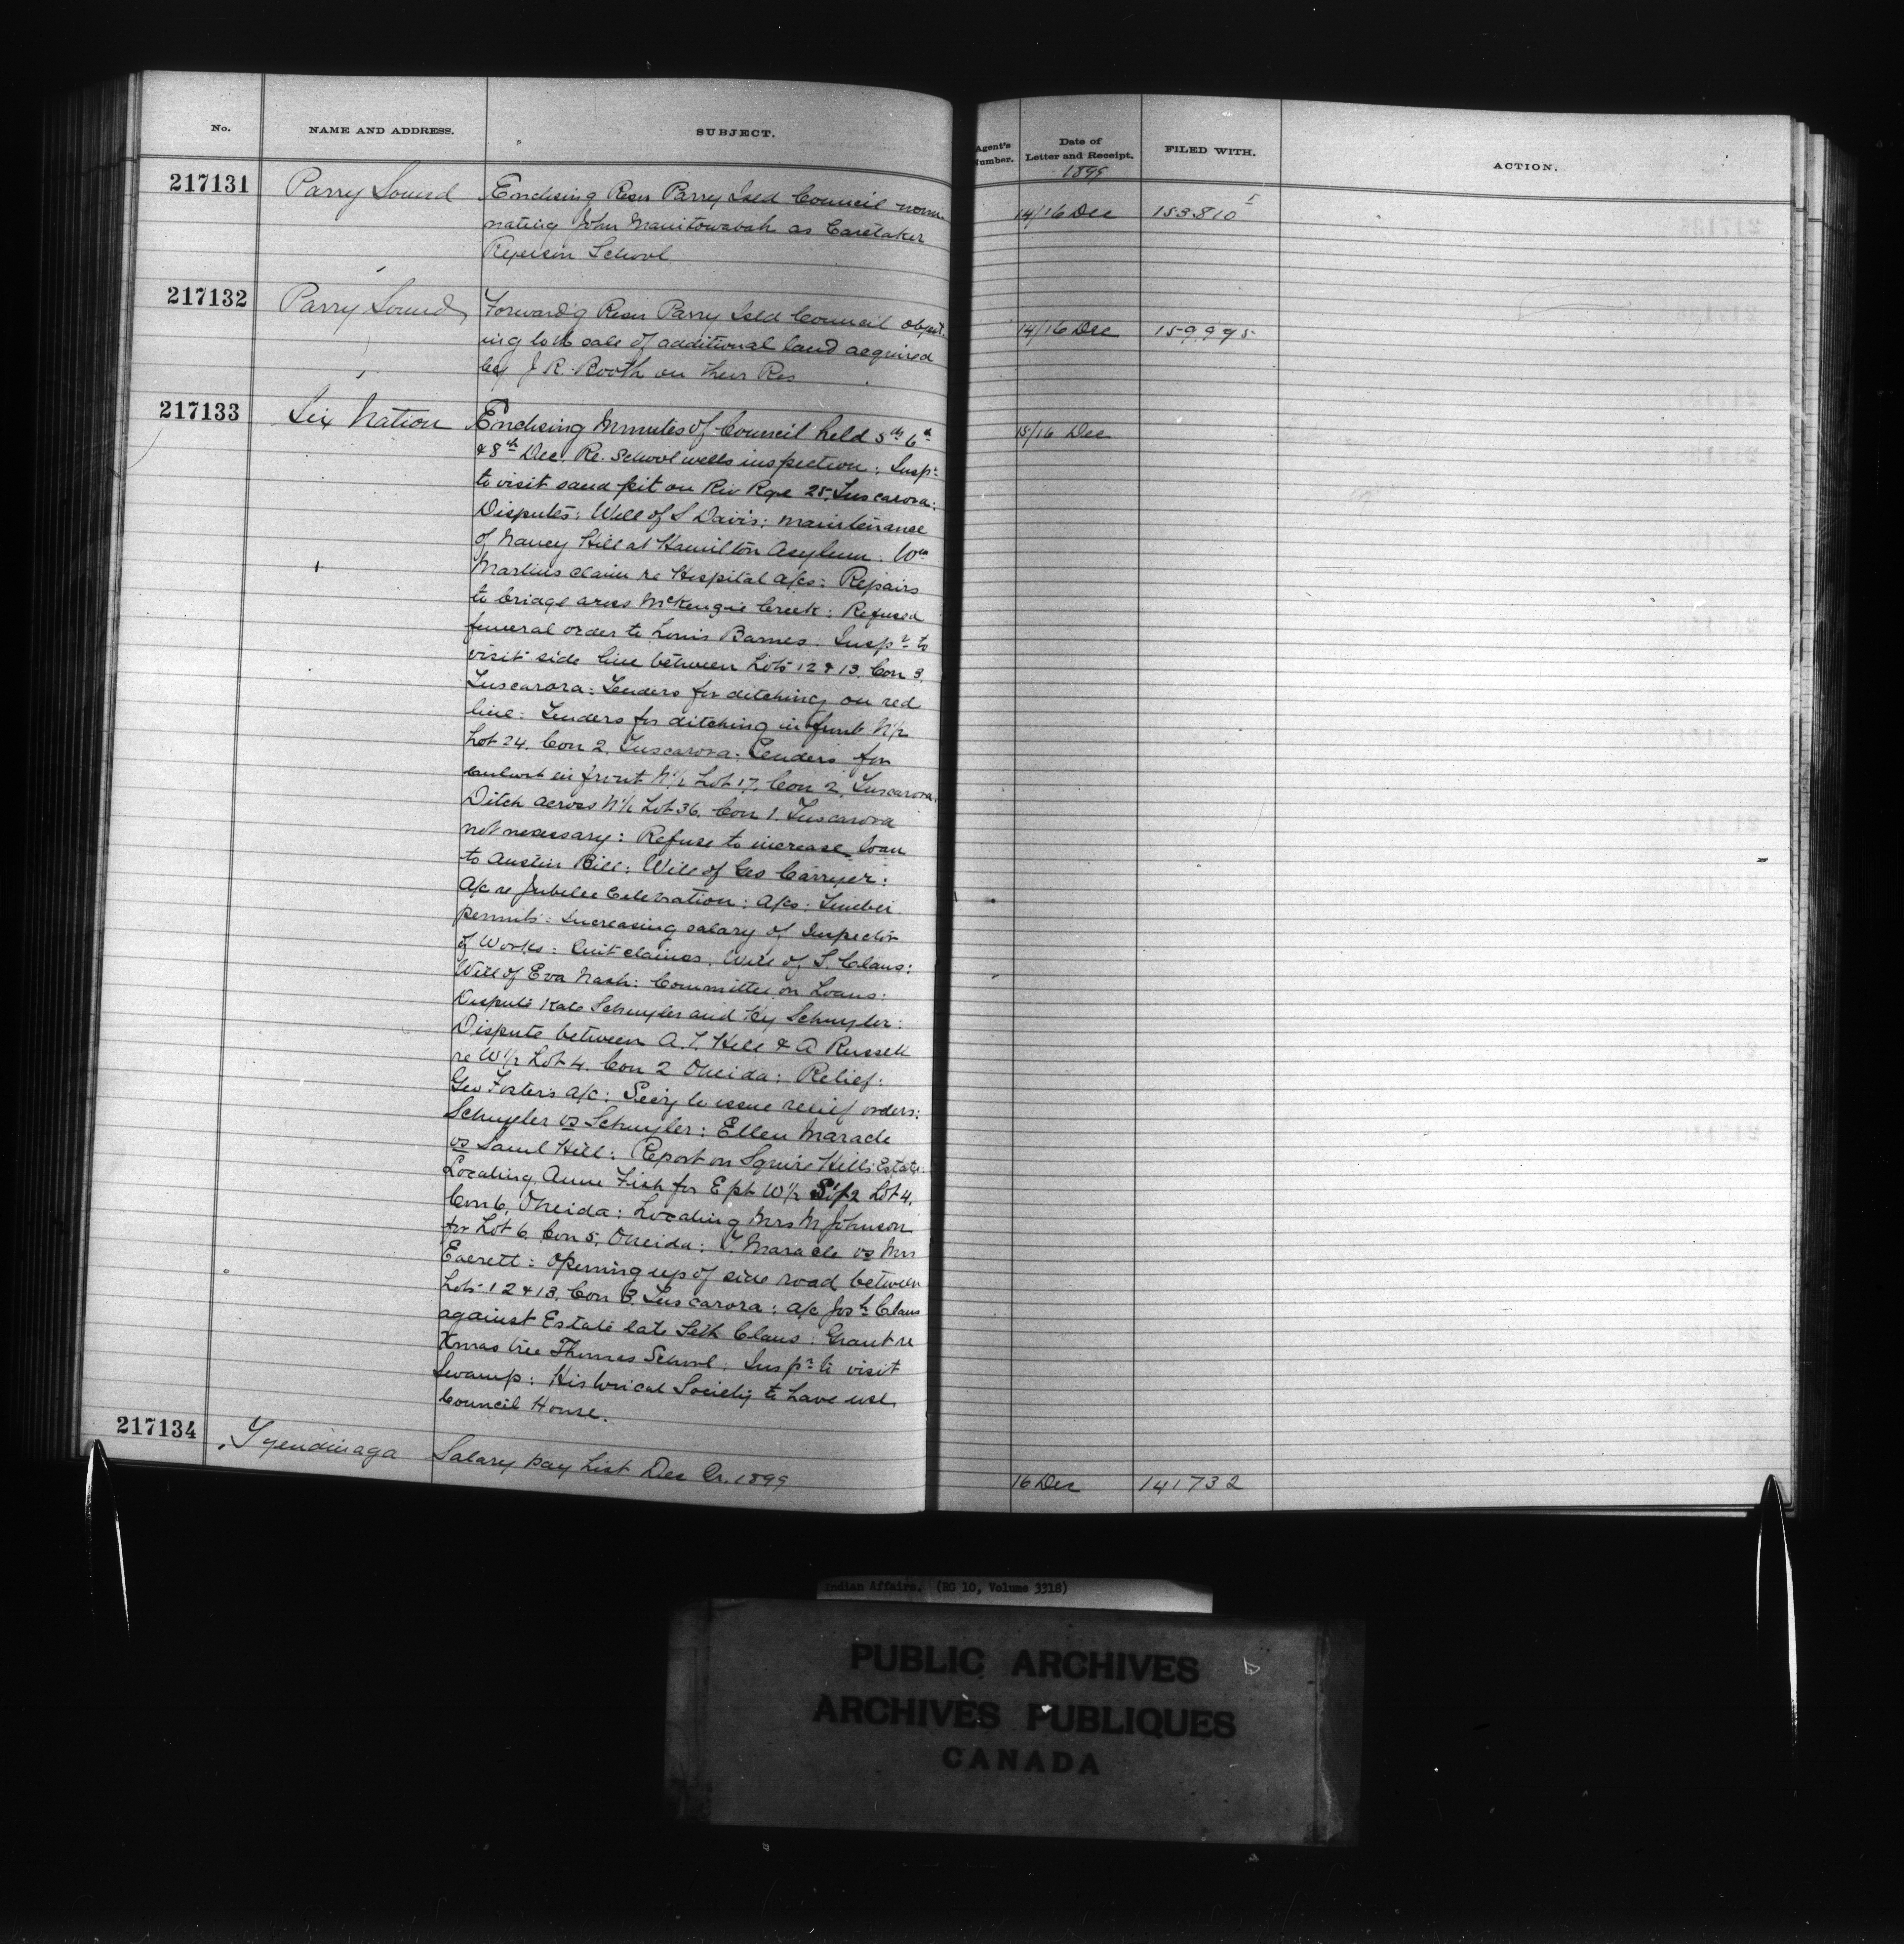 No. NAME AND ADDRESS. SUBJECT. Agent's Number. Date of Letter and Receipt. FILED WITH. ACTION.
1899
217131 Parry Sound Enclosing Resn Parry Isld Council nomi- 14/16 Dec 153810
nating John Manitowabah as Caretaker
Ryerson School
217132 Parry Sound Forward'g Resn Parry Isld Council object- 14/16 Dec 159,995
ing to sale of additional land acquired
by J R. Booth on their Res
217133 Six Nation Enclosing Minutes of Council held 5th 6th 15/16 Dec
& 8th Dec. Re. School wells inspection: Inspr
to visit sand pit on Riv Rge 25, Tuscarora:
Disputes: Will of S Davis: maintenance
of Nancy Hill at Hamilton Asylum: Wm
Martins claim re Hospital a/cs: Repairs
to bridge across McKenzie Creek: Refused
funeral order to Louis Barnes. Inspr to
visit side line between Lots 12 & 13. Con 3.
Tuscarora: Tenders for ditching on red
line: Tenders for ditching in front N1/2
Lot 24. Con 2. Tuscarora: Tenders for
culvert in front N1/2 Lot 17, Con 2, Tuscarora.
Ditch across N1/2 Lot 36. Con 1. Tuscarora
not necessary: Refuse to increase loan
to Austin Bill: Will of Geo Carryer:
A/c re Jubilee Celebration: A/cs: Timber
permits: Increasing salary of Inspector
of Works: Quit claims. Will of S. Claus:
Will of Eva Nash: Committee on Loans:
Dispute Kate Schuyler and Hy Schuyler:
Dispute between A. T. Hill & A Russell
re W1/2 Lot 4. Con 2 Oneida: Relief:
Geo Foster's a/c: Secy to issue relief orders:
Schuyler vs Schuyler: Ellen Maracle
vs Saml Hill: Report on Squire Hill's Estate:
Locating Anne Fish for E pt W1/2 S1/2 Lot 4.
Con 6, Oneida: Locating Mrs M Johnson
for Lot 6, Con 5, Oneida: T. Maracle vs Mrs
Everett: Opening up of side road between
Lots 12 & 13. Con 3. Tuscarora: a/c Josh Claus
against Estate late Seth Claus: Grant re
Xmas tree Thomas School: Inspr to visit
Swamp: Historical Society to have use
Council House.
217134 Tyendinaga Salary pay List Dec Qr. 1899 16 Dec 141732
Indian Affairs. (RG 10, Volume 3318)
PUBLIC ARCHIVES
ARCHIVES PUBLIQUES
CANADA